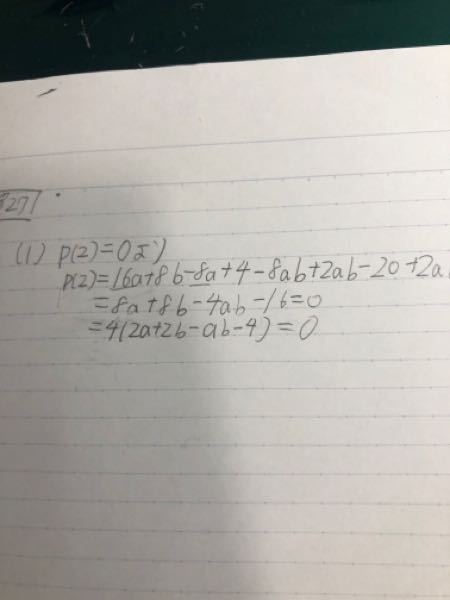 271
(1) P(2)=0より
P(2)=16a+8b-8a+4-8ab+2ab-20+2ab
=8a+8b-4ab-16=0
=4(2a+2b-ab-4)=0